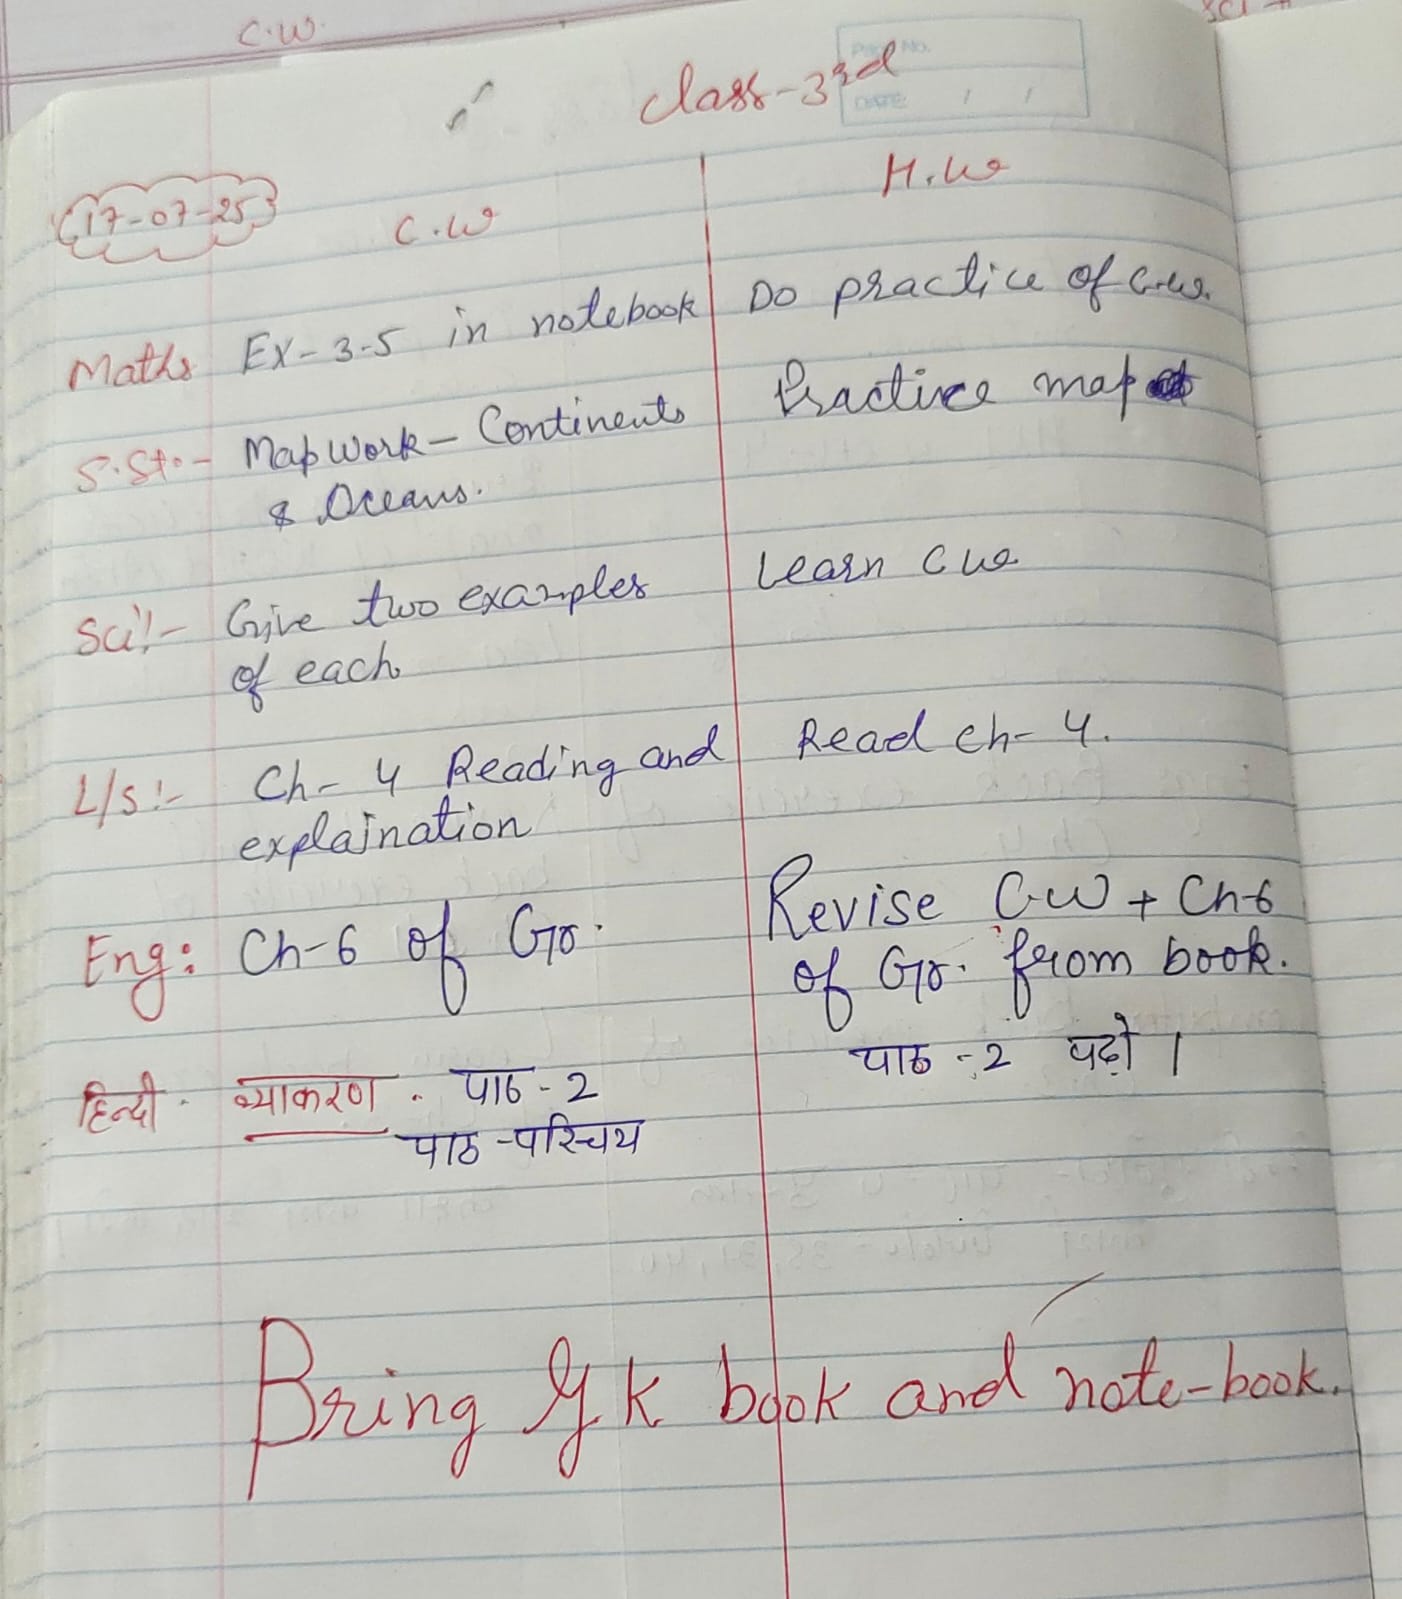 C.W.
Class-3rd
Page No.
DATE / /
17-07-25
C.W
H.W
Maths Ex-3.5 in notebook Do practice of C.W.
S.St:- Map Work - Continents Practice map
& Oceans.
Sci:- Give two examples Learn C W
of each.
L/S:- Ch- 4 Reading and Read ch- 4.
explaination
Eng: Ch-6 of Gr. Revise C.W + Ch-6
of Gr. from book.
हिन्दी - व्याकरण - पाठ - 2 पाठ - 2 पढ़ो ।
पाठ -परिचय
Bring G.K book and note-book.